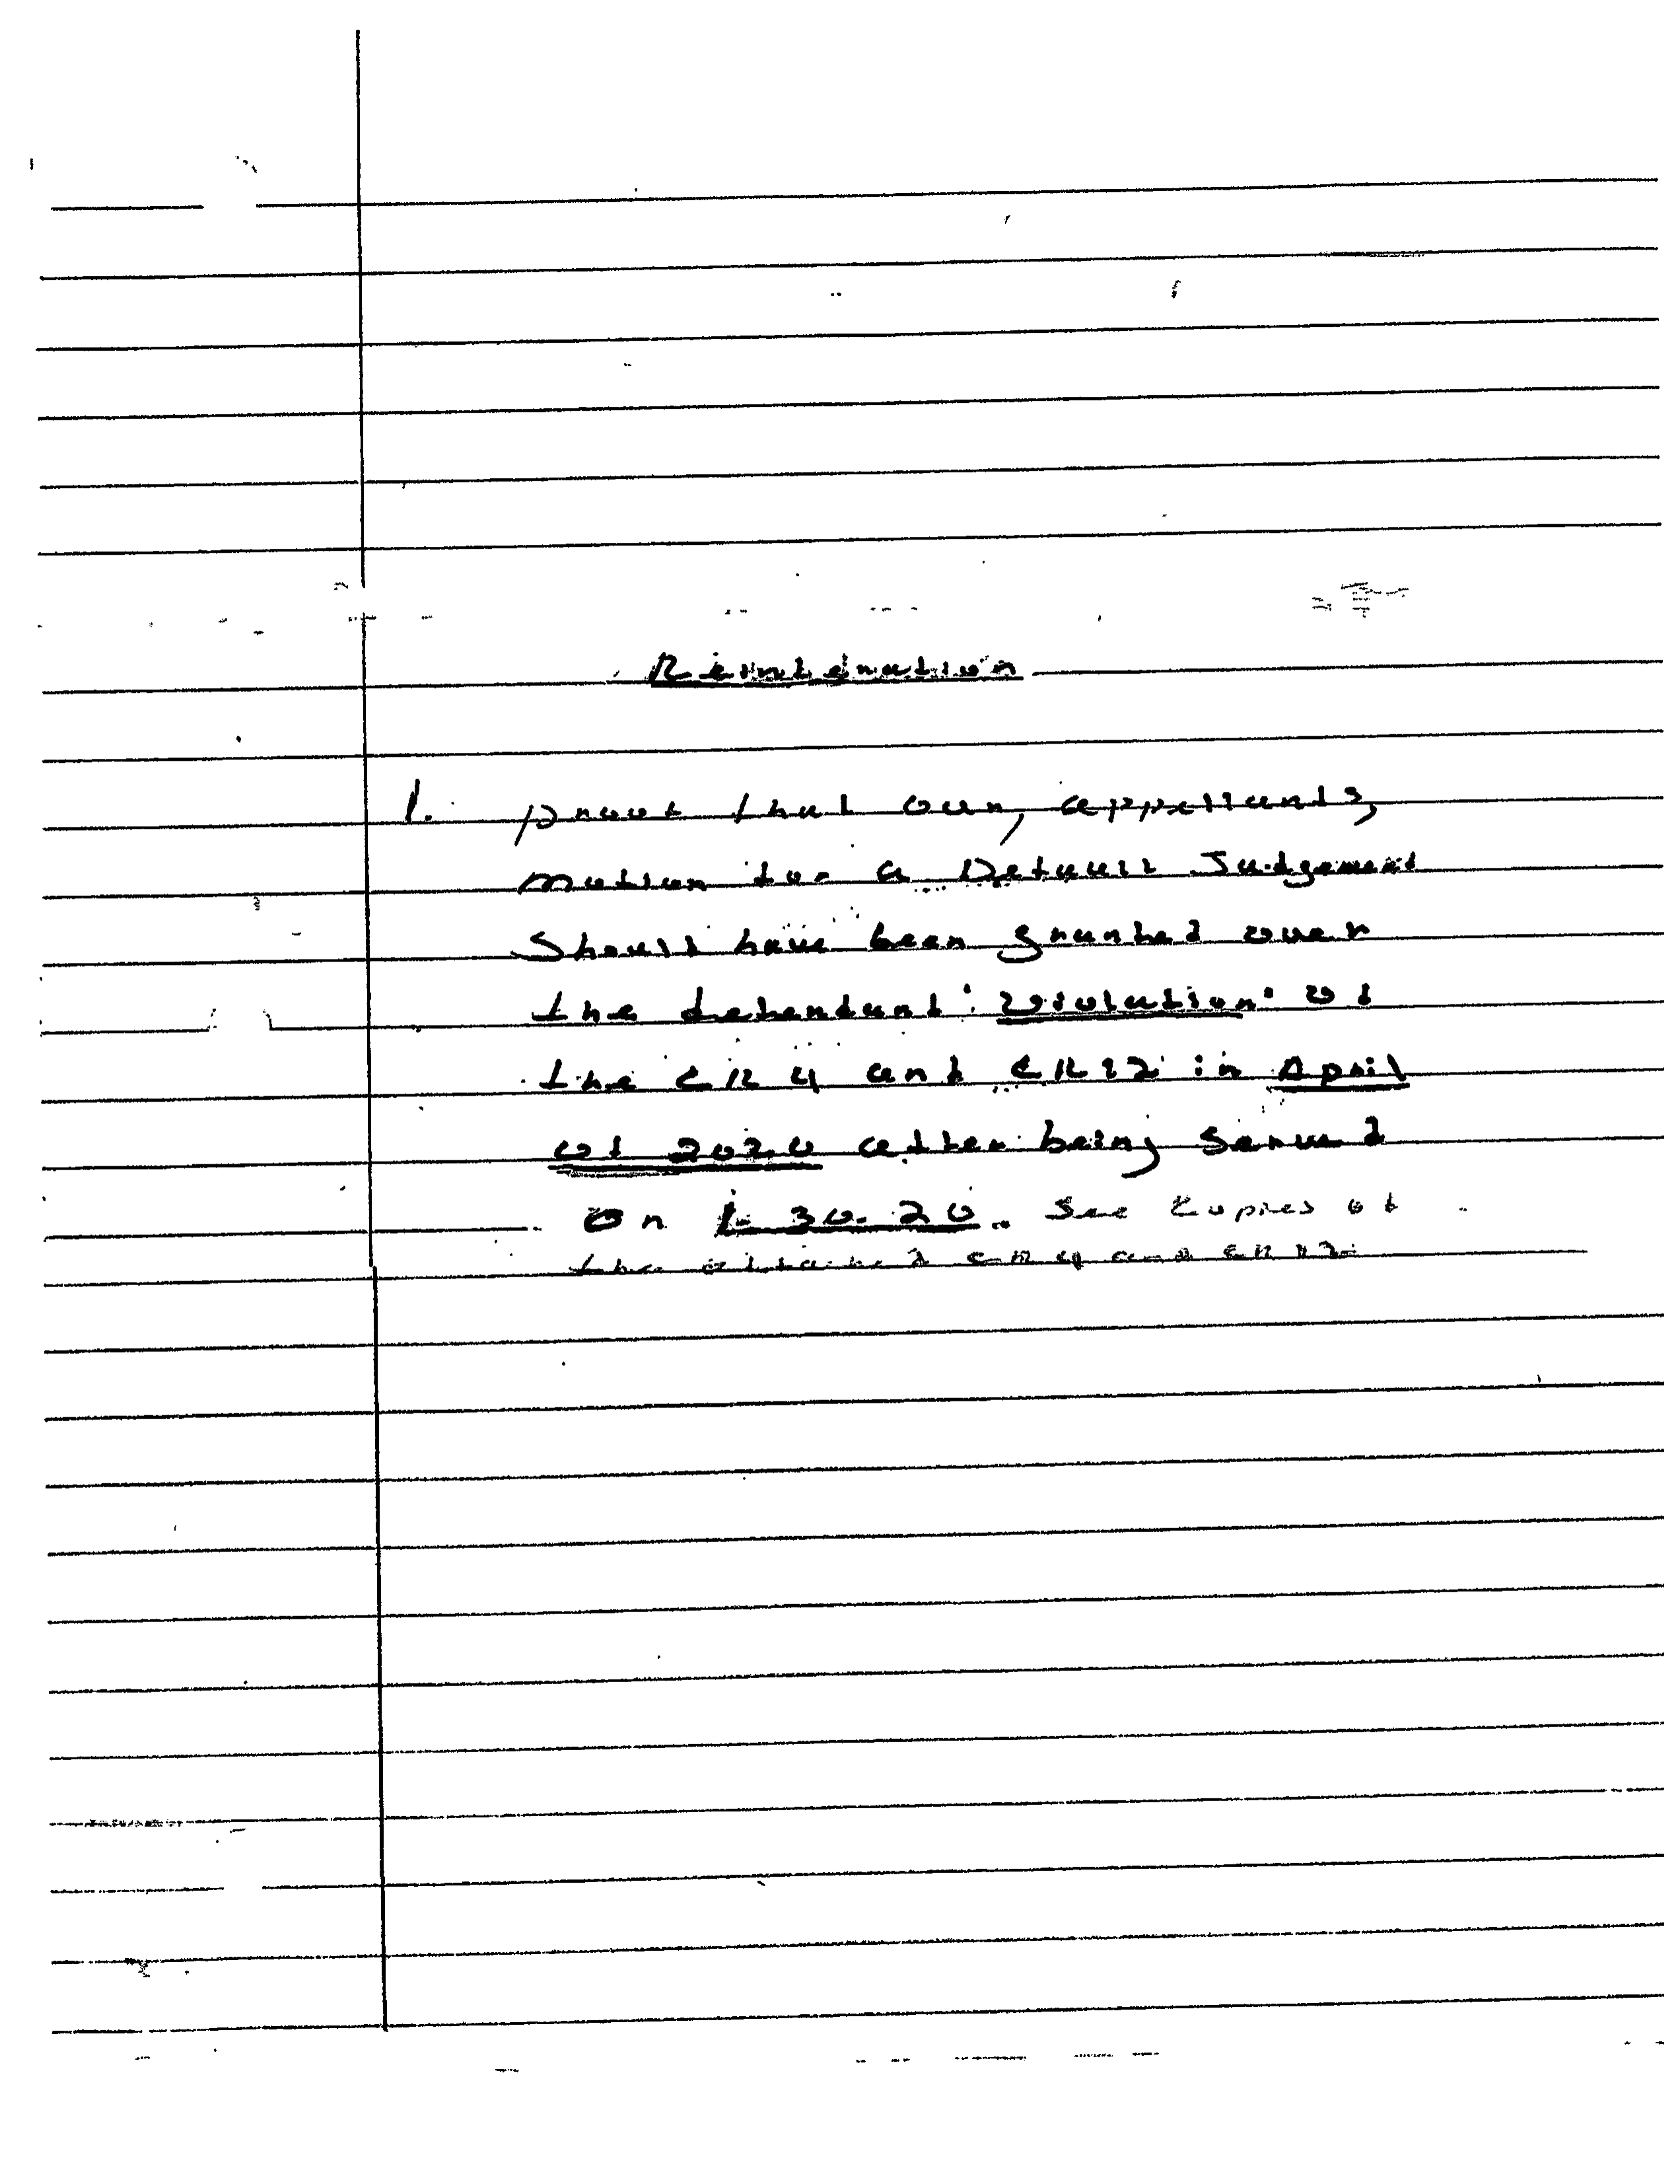 Reinteration
1. proof that our, appellants,
motion for a Default Judgement
Should have been granted over
the defendant: Violation: of
the CR 4 and CR 12 in April
of 2020 after being Served
On 1-30-20. See Copies of
the attached CR 4 and CR 12